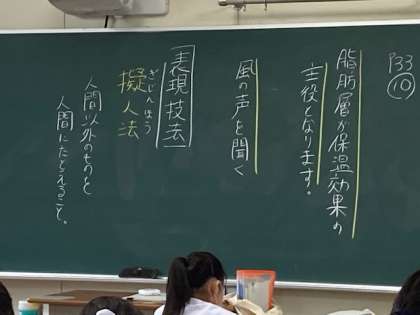 P33
⑩
脂肪層が保温効果の
主役となります。
風の声を聞く
表現技法
ぎじんほう
擬人法
人間以外のものを
人間にたとえること。